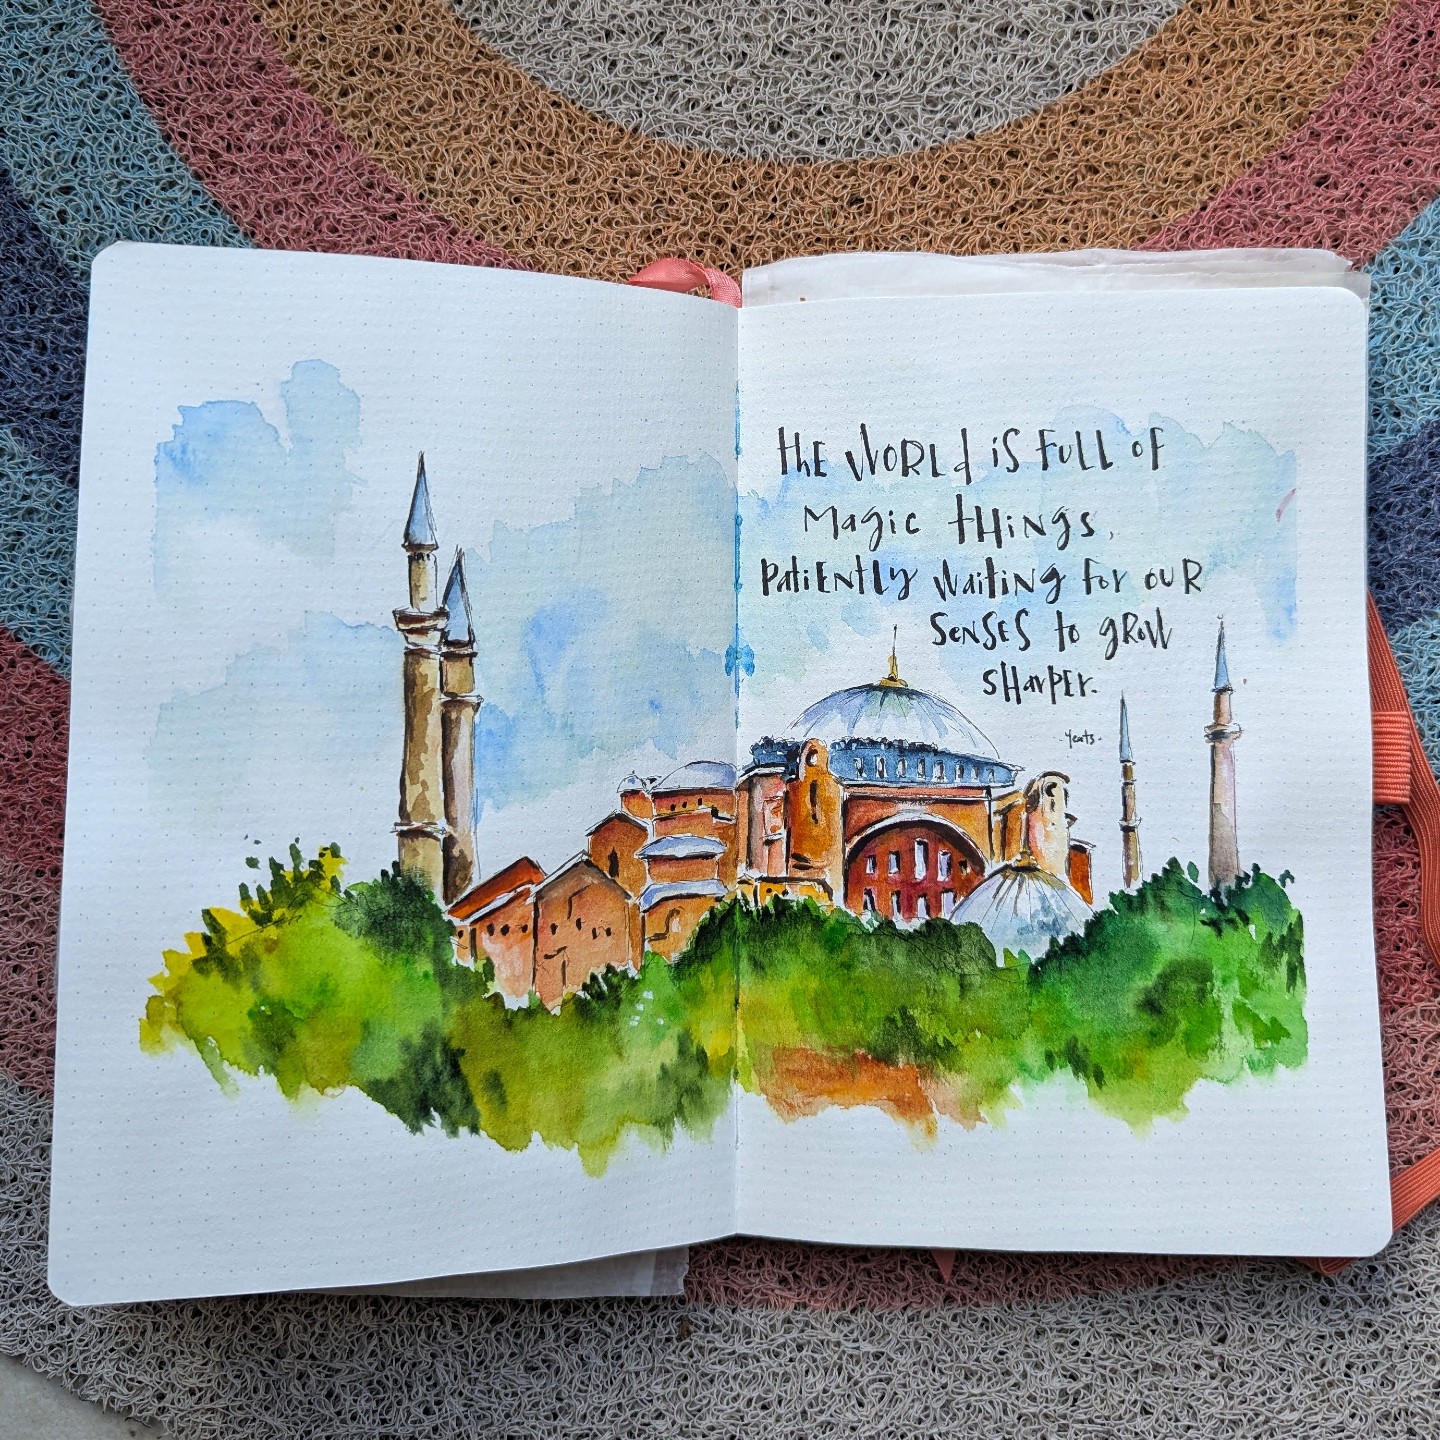 thE WORLd iS FULL OF
Magic tHiNgS,
PatiENtLy Waiting for OUR
SENSES to gROW
SHarPEr.
- Yeats -